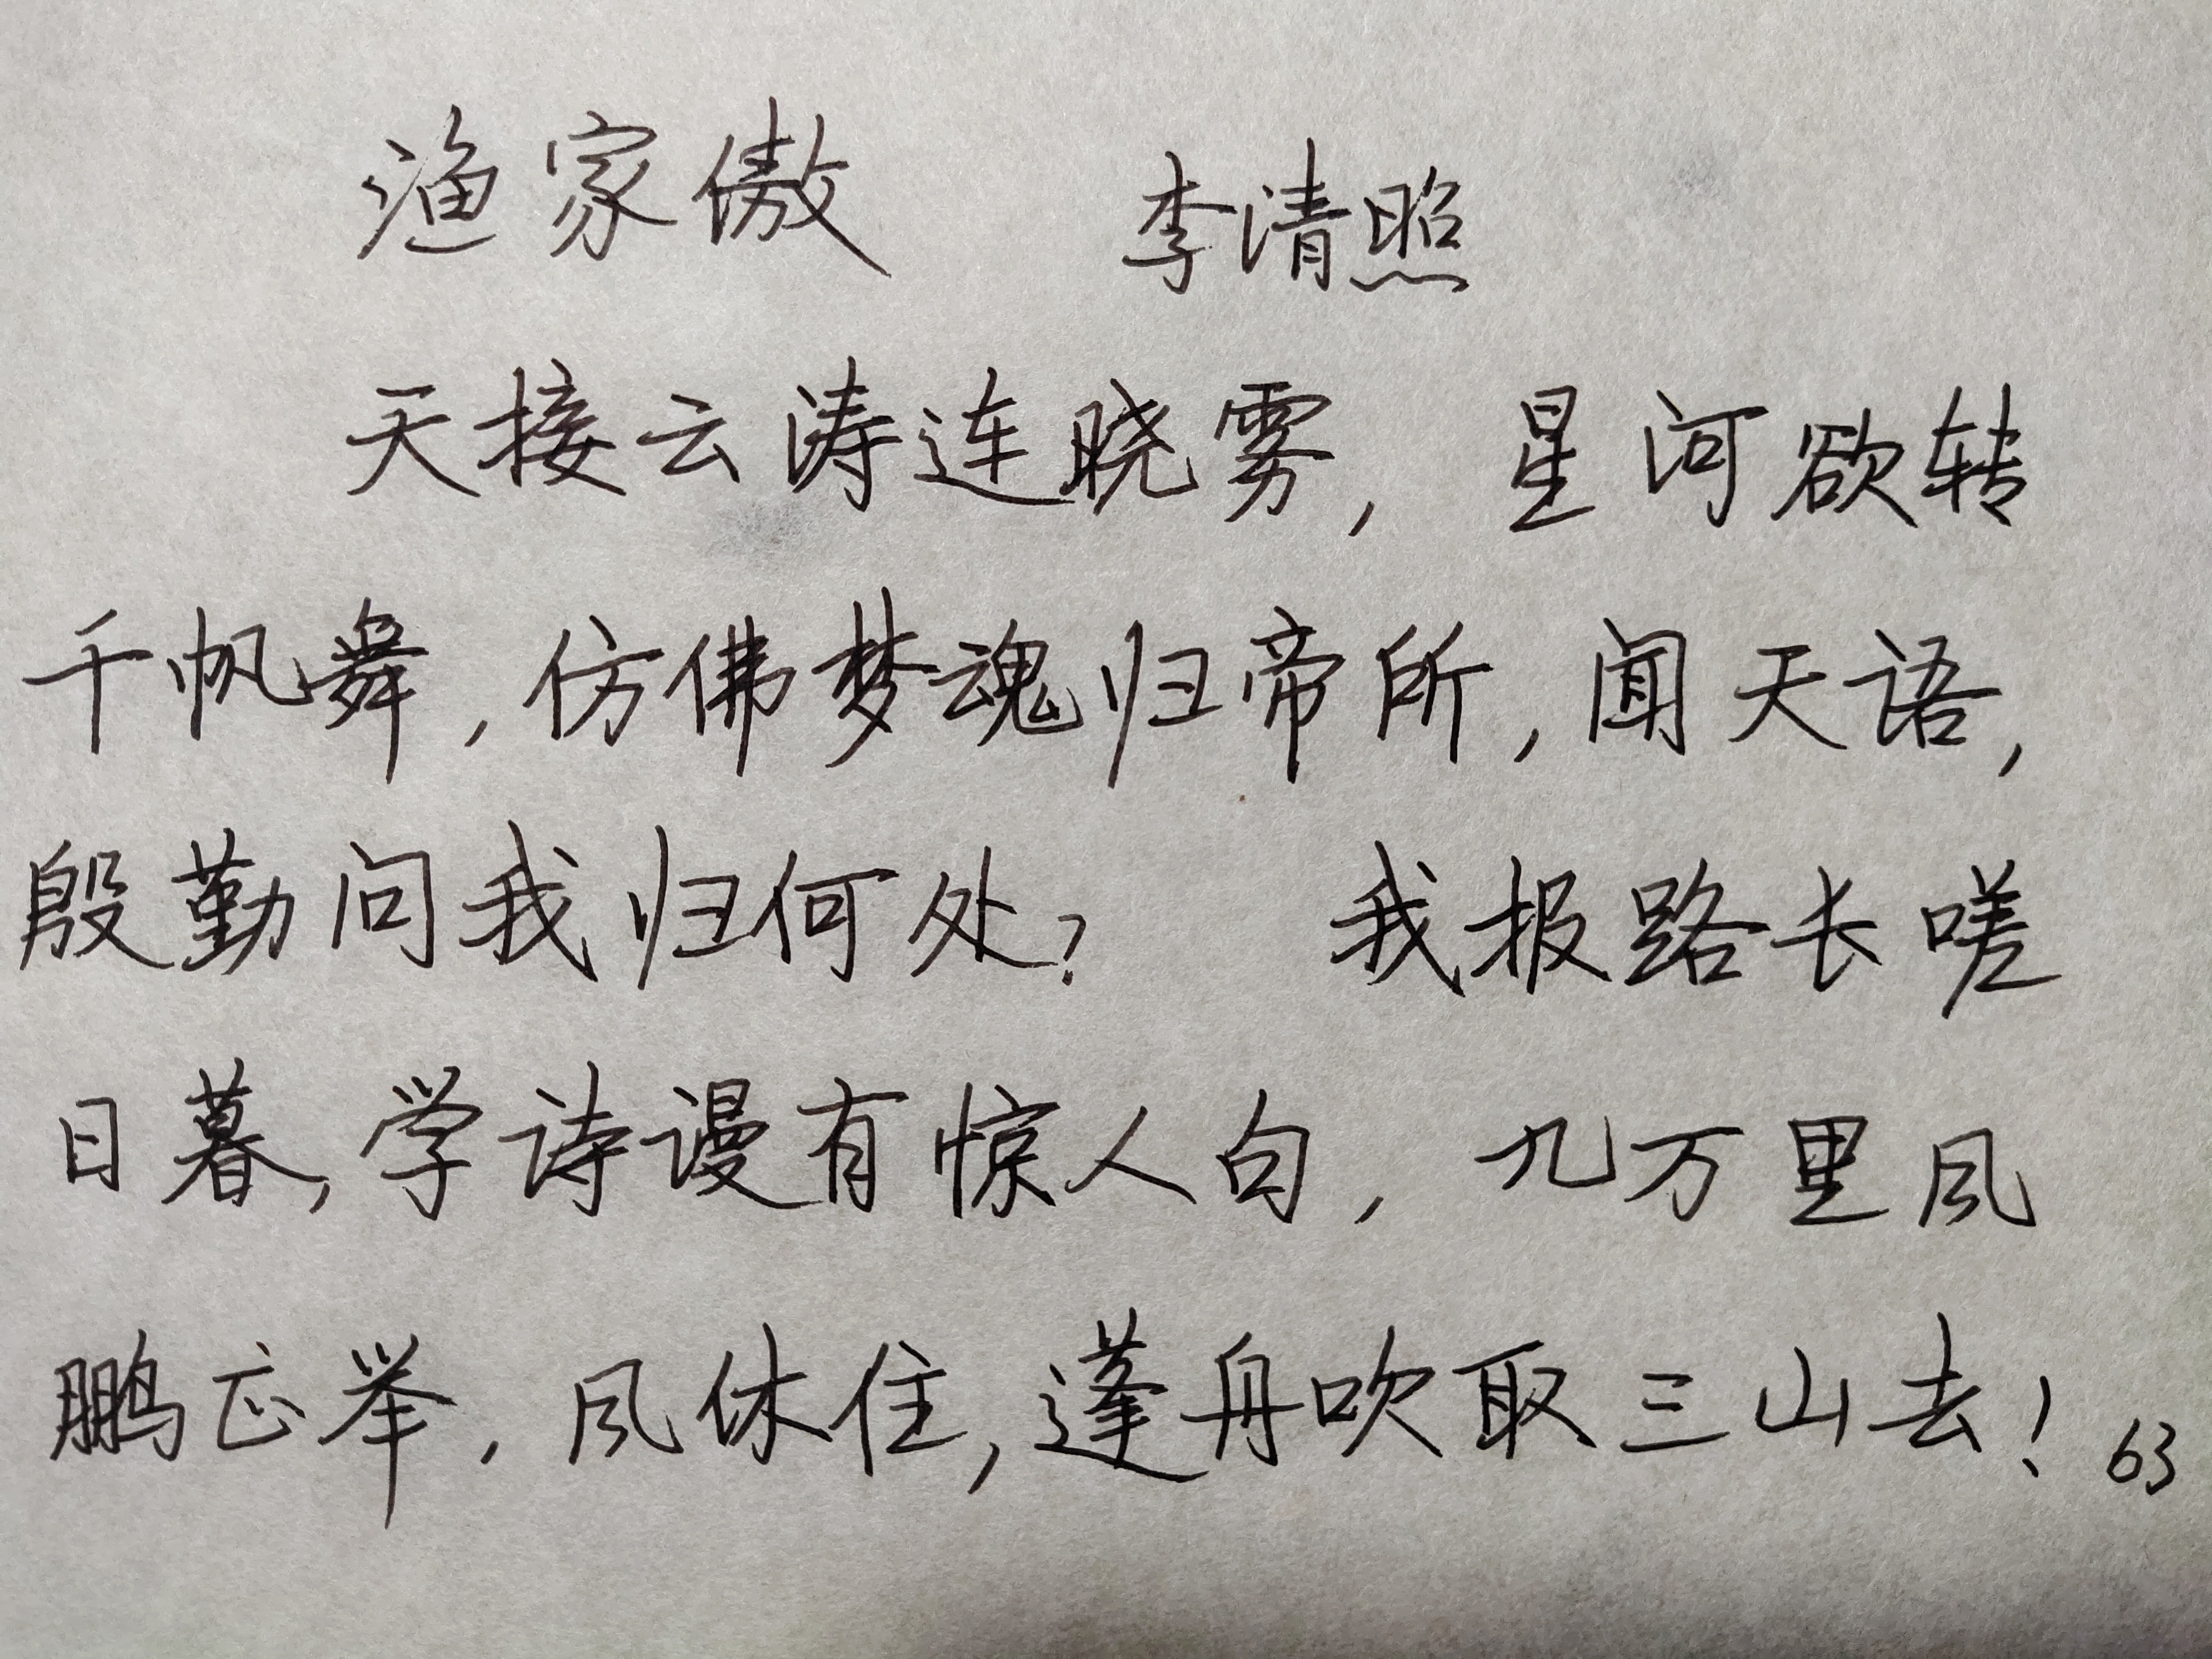 渔家傲 李清照
天接云涛连晓雾，星河欲转
千帆舞，仿佛梦魂归帝所，闻天语，
殷勤问我归何处？ 我报路长嗟
日暮，学诗谩有惊人句，九万里风
鹏正举，风休住，蓬舟吹取三山去！63